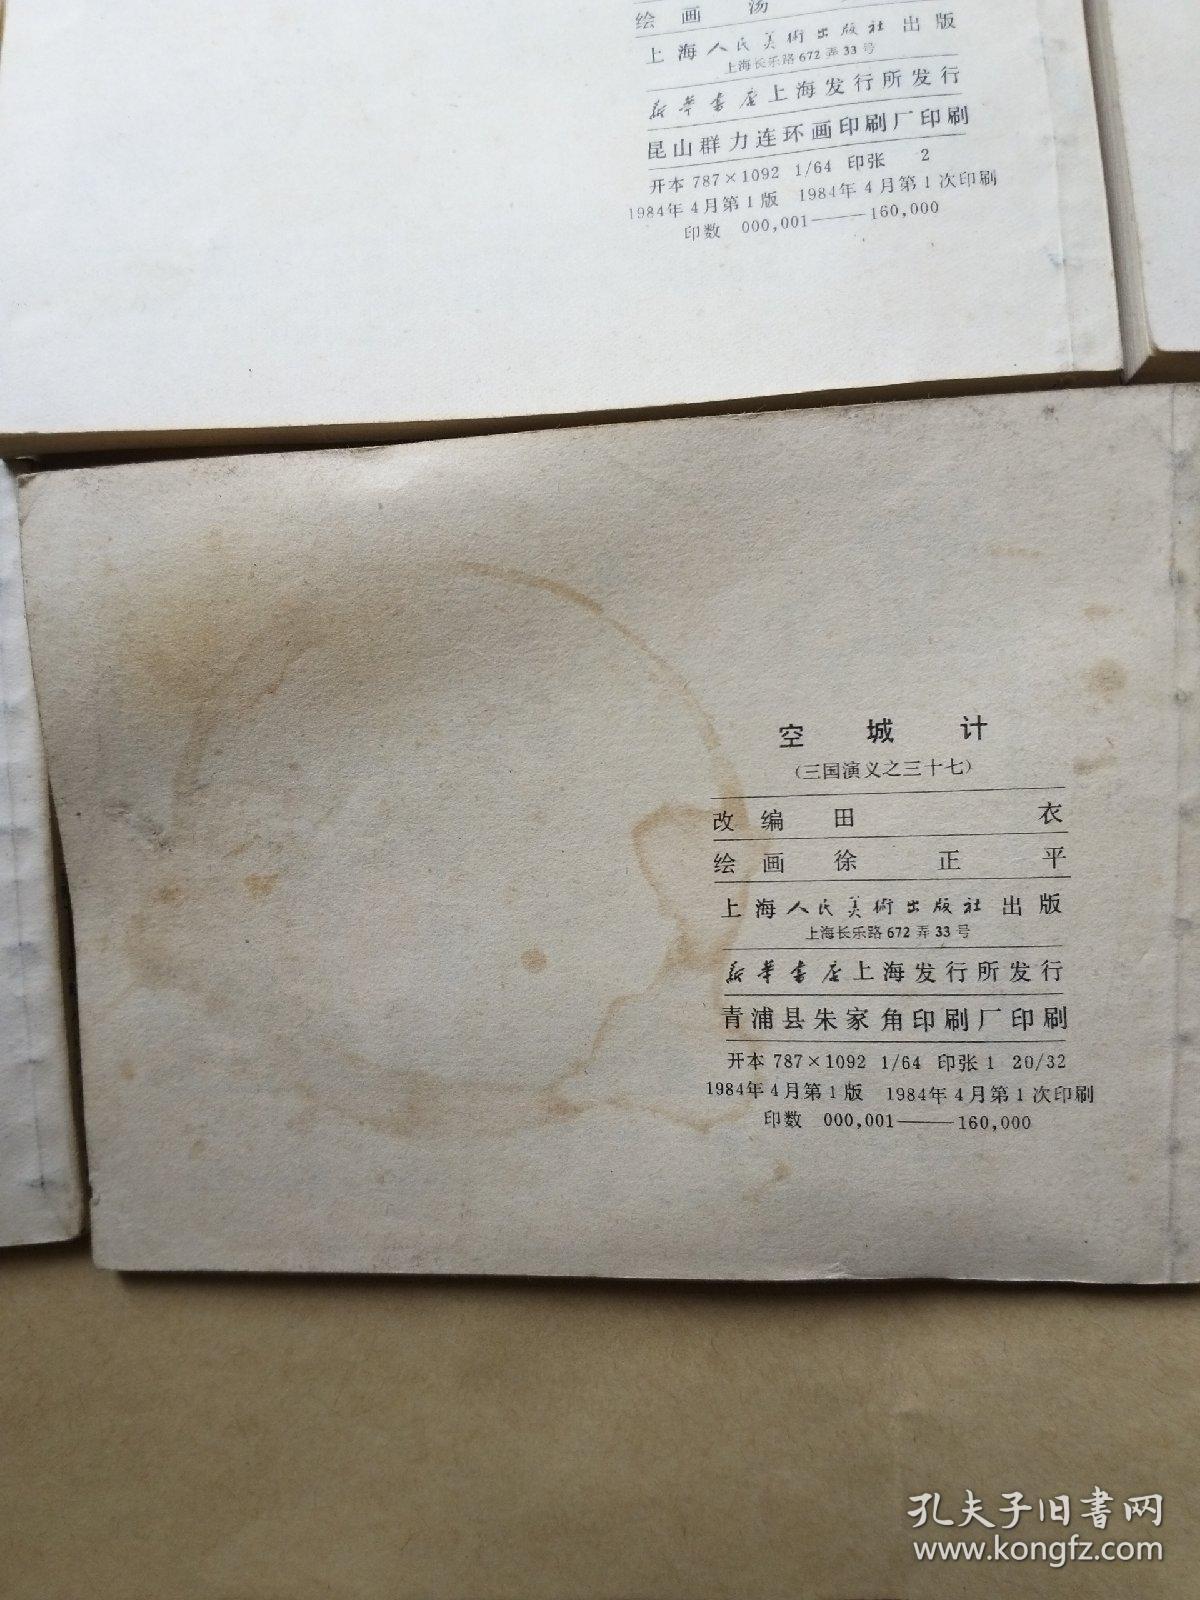 绘画 汤
上海人民美術出版社 出版
上海长乐路672弄33号
新华書店上海发行所发行
昆山群力连环画印刷厂印刷
开本 787×1092 1/64 印张 2
1984年4月第1版 1984年4月第1次印刷
印数 000,001——160,000
空城计
(三国演义之三十七)
改编 田衣
绘画 徐正平
上海人民美術出版社 出版
上海长乐路672弄33号
新华書店上海发行所发行
青浦县朱家角印刷厂印刷
开本 787×1092 1/64 印张1 20/32
1984年4月第1版 1984年4月第1次印刷
印数 000,001——160,000
孔夫子旧书网
www.kongfz.com